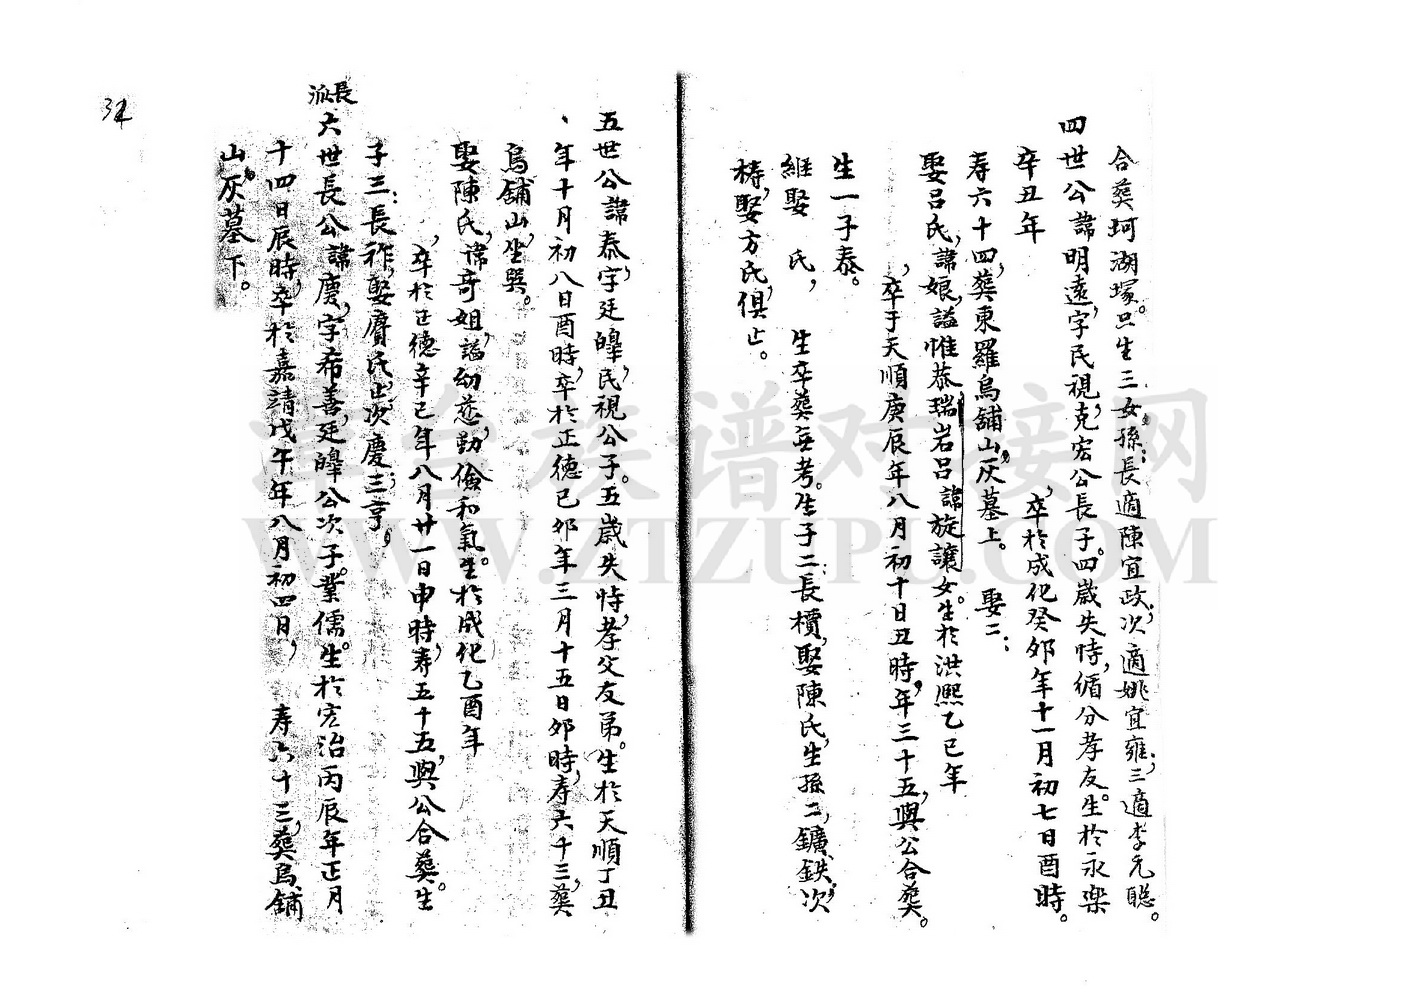 合葬珂湖塚。只生三女。孫：長適陳宜政；次適姚宜雍；三適李元聰。
四世公諱明遠，字民視，克宏公長子。四歲失恃，循分孝友。生於永樂
辛丑年　卒於成化癸卯年十一月初七日酉時。
寿六十四，葬東羅烏舖山，灰墓上。　娶二：
娶呂氏，諱娘，謚惟恭，瑞岩呂諱旋讓女。生於洪熙乙巳年
，卒于天順庚辰年八月初十日丑時，年三十五，與公合葬。
生一子泰。
継娶　氏，　生卒葬無考。生子二：長櫝，娶陳氏，生孫二，鑛、鉄；次
梼，娶方氏，俱止。
五世公諱泰，字廷皞，民視公子。五歲失恃，孝父友弟。生於天順丁丑
、年十月初八日酉時，卒於正德己卯年三月十五日卯時，寿六十三，葬
烏舖山，坐巽。
娶陳氏，諱奇姐，謚幼慈，勤儉和氣。生於成化乙酉年
，卒於正德辛巳年八月廿一日申時，寿五十五，與公合葬。生
子三：長祚，娶詹氏，止；次慶；三亨，
長派
六世長公諱慶，字希善，廷皞公次子。業儒。生於宏治丙辰年正月
十四日辰時，卒於嘉靖戊午年八月初四日，　寿六十三，葬烏舖
山，灰墓下。
32
津台族谱对接网
WWW.ZTZUPU.COM